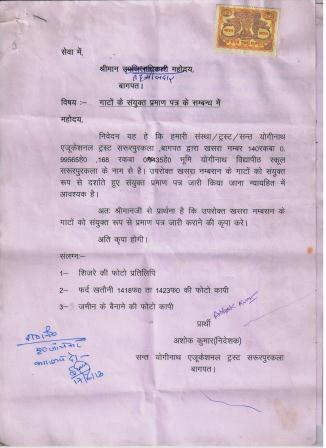 सेवा में,
श्रीमान उपजिलाधिकारी महोदय,
तहसीलदार
बागपत।
विषय :– गाटों के संयुक्त प्रमाण पत्र के सम्बन्ध में
महोदय,
निवेदन यह है कि हमारी संस्था/ट्रस्ट/सन्त योगीनाथ
एजूकेशनल ट्रस्ट सरूरपुरकला ,बागपत द्वारा खसरा नम्बर 140रकबा 0.
99565है0 ,168 रकबा भूमि योगीनाथ विद्यापीठ स्कूल
सरूरपुरकला के नाम से है। उपरोक्त खसरा नम्बरान के गाटों को संयुक्त
रूप से दर्शाते हुए संयुक्त प्रमाण पत्र जारी किया जाना न्यायहित में
आवश्यक है।
अतः श्रीमानजी से प्रार्थना है कि उपरोक्त खसरा नम्बरान के
गाटों को संयुक्त रूप से प्रमाण पत्र जारी कराने की कृपा करे।
अति कृपा होगी।
संलग्नः–
1– शिजरे की फोटो प्रतिलिपि
2– फर्द खतौनी 1418फ0 ता 1423फ0 की फोटो कापी
3– जमीन के बैनामे की फोटो कापी
Ashok Kumar
प्रार्थी
अशोक कुमार(निदेशक)
सन्त योगीनाथ एजूकेशनल ट्रस्ट सरूरपुरकला
बागपत।